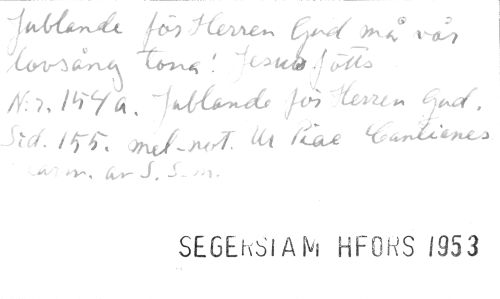 Jublande för Herren Gud må vår
lovsång tona! Jesus fötts
N:r. 154a. Jublande för Herren Gud.
Sid. 155. mel-not. Ur Piae Cantiones
av S. S.m.
SEGERSTAM HFORS 1953